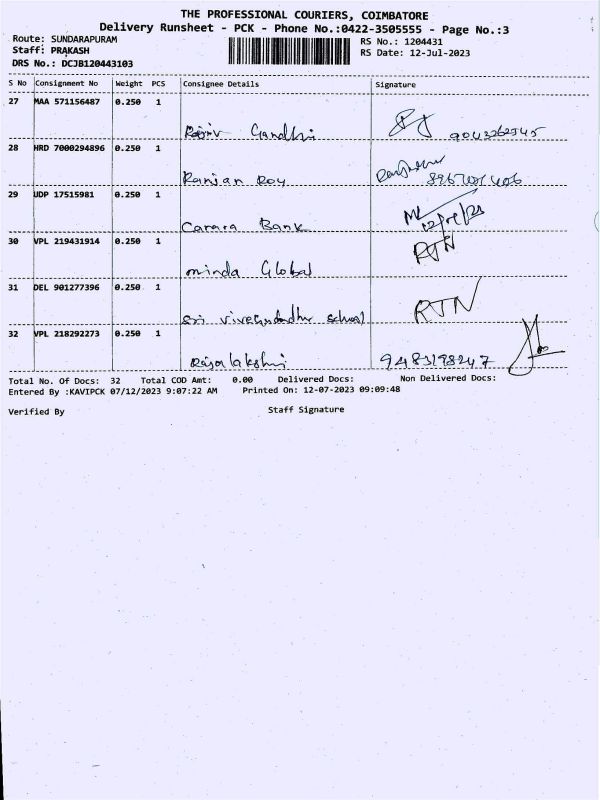 THE PROFESSIONAL COURIERS, COIMBATORE
Delivery Runsheet - PCK - Phone No.:0422-3505555 - Page No.:3
Route: SUNDARAPURAM RS No.: 1204431
Staff: PRAKASH RS Date: 12-Jul-2023
DRS No.: DCJB120443103
S No Consignment No Weight PCS Consignee Details Signature
27 MAA 571156487 0.250 1
Rajiv Gandhi
28 HRD 7000294896 0.250 1
Ranjan Roy
29 UDP 17515981 0.250 1
Canara Bank
30 VPL 219431914 0.250 1 RTN
minda Global
31 DEL 901277396 0.250 1 RTN
Sri school
32 VPL 218292273 0.250 1
Rajalakshmi 9483198247
Total No. Of Docs: 32 Total COD Amt: 0.00 Delivered Docs: Non Delivered Docs:
Entered By :KAVIPCK 07/12/2023 9:07:22 AM Printed On: 12-07-2023 09:09:48
Verified By Staff Signature